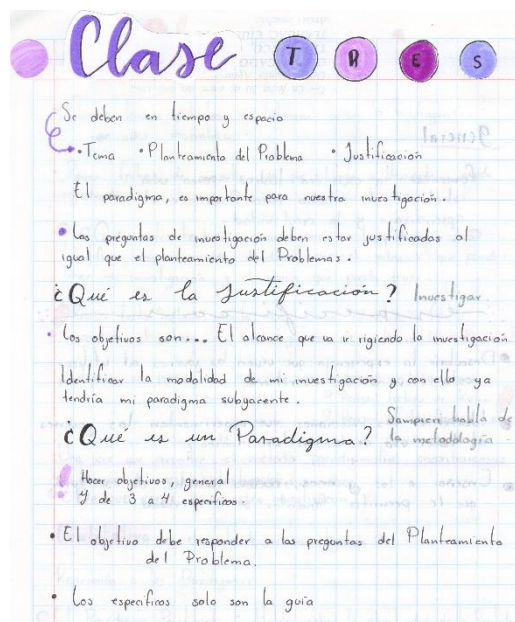 Clase TRES
Se deben en tiempo y espacio
• Tema • Planteamiento del Problema • Justificación
El paradigma, es importante para nuestra investigación.
• Las preguntas de investigación deben estar justificadas al
igual que el planteamiento del Problemas.
¿Qué es la Justificación? Investigar
• Los objetivos son... El alcance que va ir rigiendo la investigación
Identificar la modalidad de mi investigación y con ello ya
tendría mi paradigma subyacente.
¿Qué es un Paradigma? Sampieri habla de
la metodología
! Hacer objetivos, general
y de 3 a 4 específicos.
• El objetivo debe responder a las preguntas del Planteamiento
del Problema.
• Los específicos solo son la guía